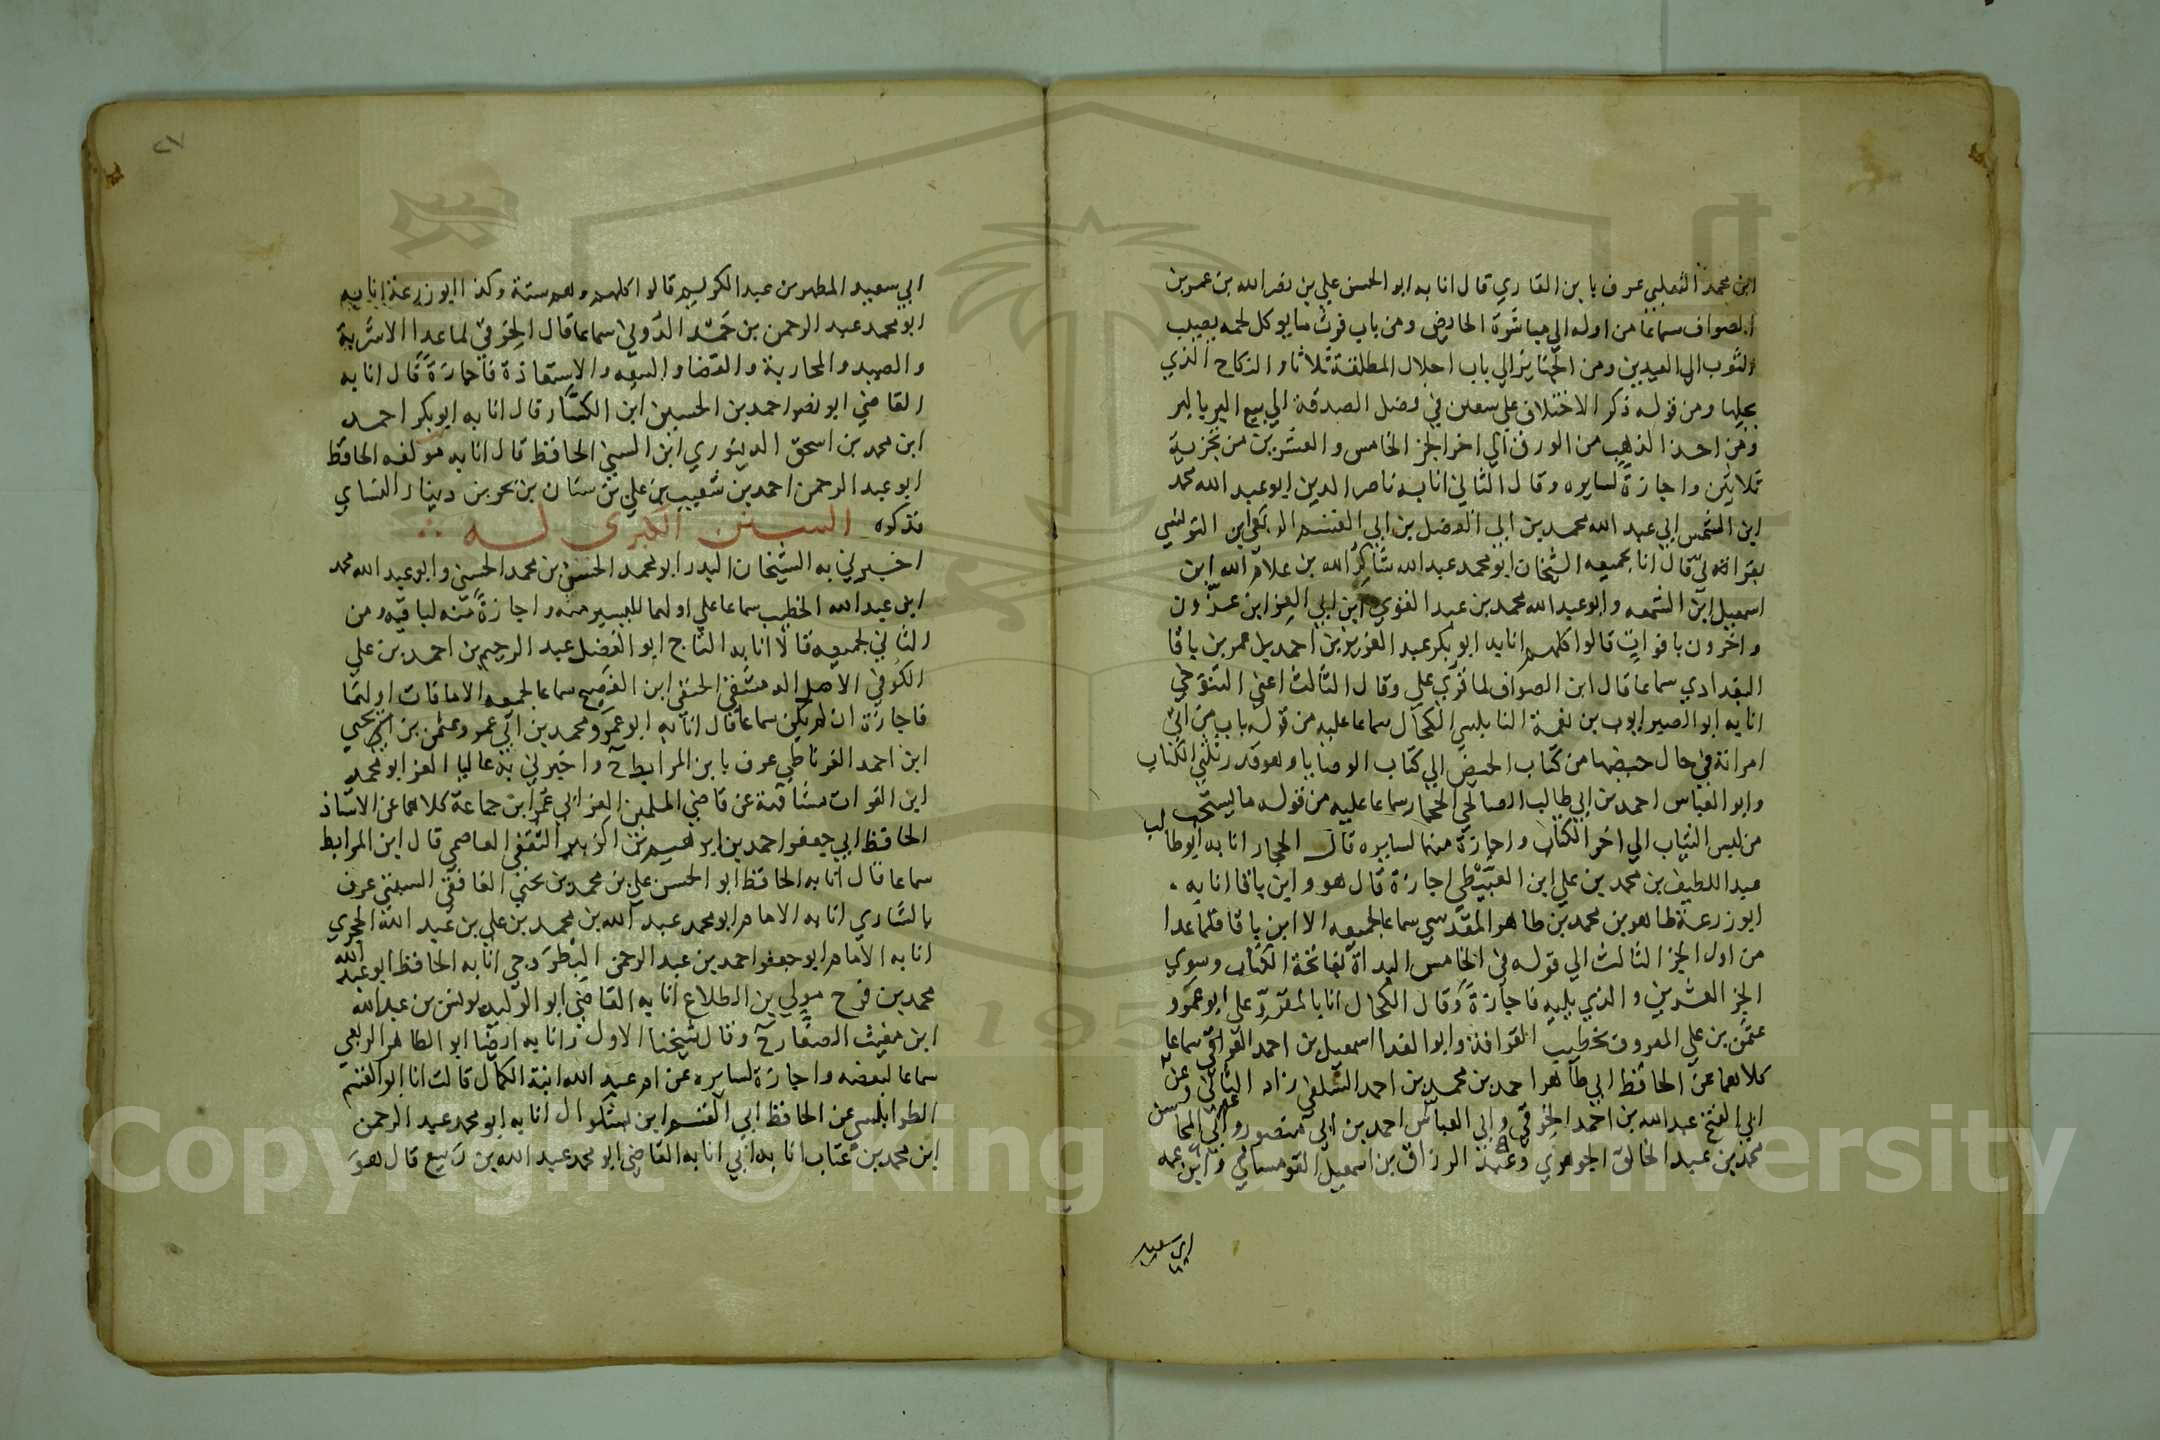 ابن محمد الثعلبي عرف بابن القاري قال انا به ابو الحسن علي بن نصر الله بن عمر بن
الصواف سماعا من اوله الي مباشرة الحايض ومن باب فرث ما يوكل لحمه يصيب
الثوب الي العيدين ومن الجنايز الي باب احلال المطلقة ثلاثا والنكاح الذي
يحلها ومن قوله ذكر الاختلاف علي سفين في فضل الصدقة الي بيع البر بالبر
ومن اخذ الذهب من الورق الي اخر الجز الخامس والعشرين من تجزية
ثلاثين واجازة لسايره وقال الثاني انا به ناصر الدين ابو عبد الله محمد
ابن الشمس ابي عبد الله محمد بن ابي الفضل بن ابي القسم الربعي ابن التونسي
بقراته لي قال انا بجميعه الشيخان ابو محمد عبد الله شاكر الله بن غلام الله ابن
اسمعيل ابن الشمعه وابو عبد الله محمد بن عبد القوي ابن ابي العز ابن عزون
واخرون بافوات قالوا كلهم انا به ابو بكر عبد العزيز بن احمد بن عمر بن باقا
البغدادي سماعا قال ابن الصواف لما قري علي وقال الثالث اعني التنوخي
انا به ابو الصبر ايوب بن نعمة النابلسي الكحال سماعا عليه من قوله باب من اتي
امراته في حال حيضها من كتاب الحيض الي كتاب الوصايا وهو قدر ثلثي الكتاب
وابو العباس احمد بن ابي طالب الصالحي الحجار سماعا عليه من قوله ما يستحب
من لبس الثياب الي اخر الكتاب واجازة منهما لسايره قال الحجار انا به ابو طالب
عبد اللطيف بن محمد بن علي ابن القبيطي اجازة قال هو وابن باقا انا به
ابو زرعة طاهر بن محمد بن طاهر المقدسي سماعا لجميعه الا ابن باقا فلما عدا
من اول الجز الثالث الي قوله في الخامس البداة بفاتحة الكتاب وسوي
الجز العشرين والذي يليه فاجازة وقال الكحال انا بالمقرو علي ابو عمرو
عثمن بن علي المعروف بخطيب القرافة وابو الفدا اسمعيل بن احمد العراقي سماعا
كلاهما عن الحافظ ابي طاهر احمد بن محمد بن احمد السلفي زاد الثاني وعن
ابي الفتح عبد الله بن احمد الخرقي وابي العباس احمد بن ابي منصور وابي المحاسن
محمد بن عبد الخالق الجوهري وعبد الرزاق بن اسمعيل القومساني وابن عمه
ابي سعيد
٢٧
ابي سعيد المطهر بن عبد الكريم قالوا كلهم وهم ستة وكذا ابو زرعة انا به
ابو محمد عبد الرحمن بن حمد الدوني سماعا قال الخرقي لما عدا الاشربة
والصيد والمحاربة والقضا والبيعه والاستعاذة فاجازة قال انا به
القاضي ابو نصر احمد بن الحسين ابن الكسار قال انا به ابو بكر احمد
ابن محمد بن اسحق الدينوري ابن السني الحافظ قال انا به مولفه الحافظ
ابو عبد الرحمن احمد بن شعيب بن علي بن سنان بن بحر بن دينار النساي
فذكره السنن الكبرى له
اخبرني به الشيخان البدر ابو محمد الحسن بن محمد الحسني وابو عبد الله محمد
ابن عبد الله الخطيب سماعا علي اولهما لليسير منه واجازة منه لباقيه ومن
الثاني لجميعه قالا انا به التاج ابو الفضل عبد الرحيم بن احمد بن علي
الكوفي الاصل الدمشقي الحنفي ابن الفصيح سماعا لجميعه الا ما فات اولهما
فاجازة ان لم يكن سماعا قال انا به ابو عمرو محمد بن ابي عمرو عثمن بن يحيي
ابن احمد الغرناطي عرف بابن المرابط ح واخبرني به عاليا العز ابو محمد
ابن الفرات مشافهة عن قاضي المسلمين العز ابي عمر ابن جماعة كلاهما عن الاستاذ
الحافظ ابي جعفر احمد بن ابرهيم بن الزبير الثقفي العاصمي قال ابن المرابط
سماعا قال انا به الحافظ ابو الحسن علي بن محمد بن يحيي الغافقي السبتي عرف
بالشاري انا به الامام ابو محمد عبد الله بن محمد بن علي بن عبد الله الحجري
انا به الامام ابو جعفر احمد بن عبد الرحمن البطروجي انا به الحافظ ابو عبد الله
محمد بن فرج مولي بن الطلاع انا به القاضي ابو الوليد يونس بن عبد الله
ابن مغيث الصفار ح وقال شيخنا الاول وانا به ايضا ابو الطاهر الربعي
سماعا لبعضه واجازة لسايره عن ام عبد الله ابنة الكمال قالت انا ابو القسم
الطرابلسي عن الحافظ ابي القسم ابن بشكوال انا به ابو محمد عبد الرحمن
ابن محمد بن عتاب انا به ابي انا به القاضي ابو محمد عبد الله بن ربيع قال هو
Copyright © King Saud University
195